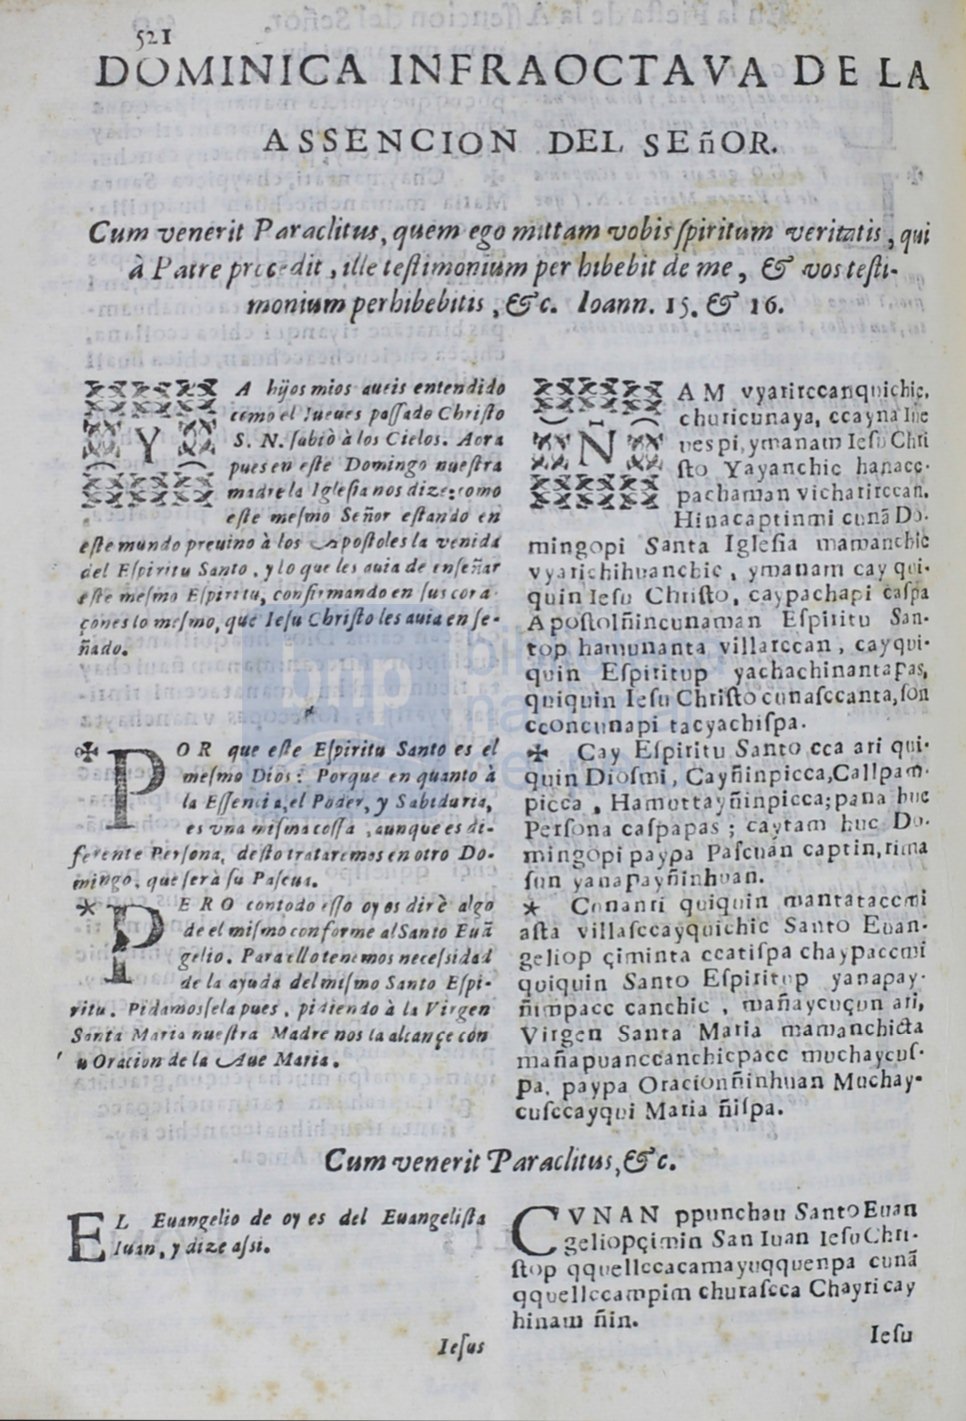 521
DOMINICA INFRAOCTAVA DE LA
ASSENCION DEL SEñOR.
Cum venerit Paraclitus, quem ego mittam vobis ſpiritum veritatis, qui
à Patre procedit, ille teſtimonium per hibebit de me, & vos teſti-
monium perhibebitis, &c. Ioann. 15. & 16.
Y A hijos mios aueis entendido
como el Iueues paſſado Chriſto
S. N. ſubiò à los Cielos. Aora
pues en eſte Domingo nueſtra
madre la Igleſia nos dize: como
eſte meſmo Señor eſtando en
eſte mundo preuino à los Apoſtoles la venida
del Eſpiritu Santo, y lo que les auia de enſeñar
eſte meſmo Eſpiritu, confirmando en ſus cora
çones lo meſmo, que Ieſu Chriſto les auia en ſe-
ñado.
*
✠ POR que eſte Eſpiritu Santo es el
meſmo Dios: Porque en quanto à
la Eſſencia, el Poder, y Sabiduria,
es vna miſma coſſa, aunque es di-
ferente Perſona, deſto trataremos en otro Do-
mingo, que ſerà ſu Paſcua.
* PERO con todo eſſo oy os dirè algo
de el miſmo conforme al Santo Euã
gelio. Para ello tenemos neceſsidad
de la ayuda del miſmo Santo Eſpi-
ritu. Pidamoſela pues, pidiendo à la Virgen
Santa Maria nueſtra Madre nos la alcançe con
u Oracion de la Aue Maria.
N AM vyarirccanquichic,
churicunaya, ccayna Iue
ues pi, ymanam Ieſu Chri
ſto Yayanchic hanacc-
pachaman vicharirccan.
Hinacaptinmi cunã Do-
mingopi Santa Igleſia mamanchic
vyarichihuanchic, ymanam cay qui-
quin Ieſu Chriſto, caypachapi caſpa
Apoſtolñincunaman Eſpiritu San-
top hamunanta villarccan, cayqui-
quin Eſpiritup yachachinantapas,
quiquin Ieſu Chriſto cunaſccanta, ſon
cconcunapi tacyachiſpa.
✠ Cay Eſpiritu Santo cca ari qui-
quin Dioſmi, Cayñinpicca, Callpam-
picca, Hamuttayñinpicca; pana huc
Perſona caſpapas; caytam huc Do-
mingopi paypa Paſcuan captin, rima
ſun yanapayñinhuan.
* Cunanri quiquin mantataccmi
aſta villaſccayquichic Santo Euan-
geliop çiminta ccatiſpa chaypaccmi
quiquin Santo Eſpiritup yanapay-
ñimpacc canchic, mañaycuçun ari,
Virgen Santa Maria mamanchicta
mañapuanccanchicpacc muchaycuſ-
pa, paypa Oracionñinhuan Muchay-
cuſccayqui Maria ñiſpa.
Cum venerit Paraclitus, &c.
EL Euangelio de oy es del Euangeliſta
Iuan, y dize aſsi.
Ieſus
CVNAN ppunchau Santo Euan
geliopçimin San Iuan Ieſu Chri-
ſtop qquellccacamayuqquenpa cunã
qquellccampim churaſcca Chayri cay
hinam ñin.
Ieſu